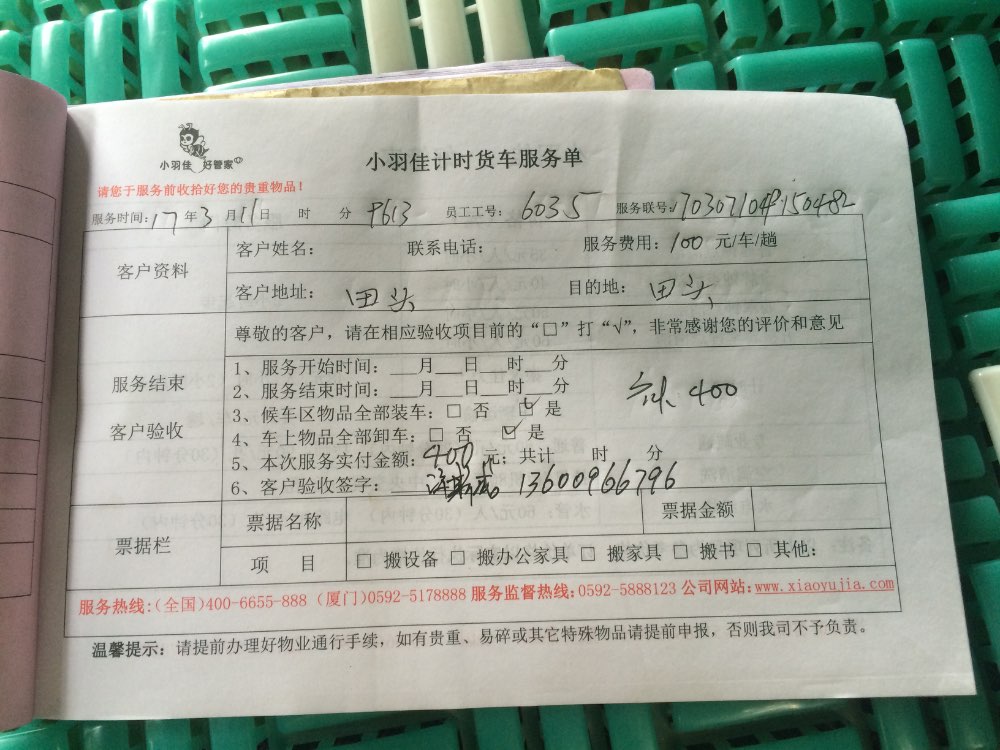 小羽佳 好管家
小羽佳计时货车服务单
请您于服务前收拾好您的贵重物品！
服务时间：17年3月11日 时 分 9613 员工工号：6035 服务联号：
客户资料 客户姓名： 联系电话： 服务费用：100 元/车/趟
客户地址：田头 目的地：田头
尊敬的客户，请在相应验收项目前的“□”打“√”，非常感谢您的评价和意见
服务结束
客户验收
1、服务开始时间：___月___日___时___分
2、服务结束时间：___月___日___时___分
400
3、候车区物品全部装车：□ 否 ☑ 是
4、车上物品全部卸车：□ 否 ☑ 是
5、本次服务实付金额：400元；共计 时 分
6、客户验收签字： 13600966796
票据栏 票据名称 票据金额
项 目 □ 搬设备 □ 搬办公家具 □ 搬家具 □ 搬书 □ 其他：
服务热线：（全国）400-6655-888（厦门）0592-5178888 服务监督热线：0592-5888123 公司网站：www.xiaoyujia.com
温馨提示：请提前办理好物业通行手续，如有贵重、易碎或其它特殊物品请提前申报，否则我司不予负责。